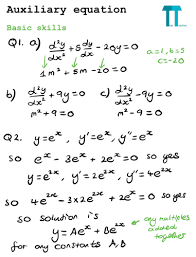 Auxiliary equation
Basic skills
Q1. a) d²y/dx² + 5 dy/dx - 20y = 0
a=1, b=5
c=-20
1m² + 5m - 20 = 0
b) d²y/dx² + 9y = 0 c) d²y/dx² - 9y = 0
m² + 9 = 0 m² - 9 = 0
Q2. y = eˣ, y' = eˣ, y'' = eˣ
so eˣ - 3eˣ + 2eˣ = 0 so yes
y = e²ˣ, y' = 2e²ˣ, y'' = 4e²ˣ
so 4e²ˣ - 3×2e²ˣ + 2e²ˣ = 0 so yes
so solution is
y = Aeˣ + Be²ˣ
any multiples
added
together
for any constants A, B